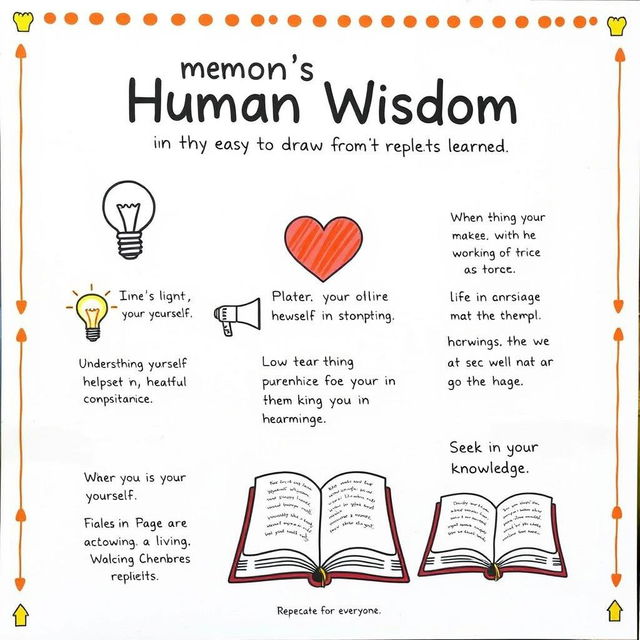 memon's
Human Wisdom
iin thy easy to draw from't replets learned.
When thing your
makee. with he
working of trice
as torce.
Iine's lignt,
your ycurself.
Plater. your ollire
hewself in stonpting.
life in cnrsiage
mat the thempl.
horwings. the we
at sec well nat ar
go the hage.
Understhing yurself
helpset in, heatful
conpsitanice.
Low tear thing
purenhice foe your in
them king you in
hearminge.
Seek in your
knowledge.
Whaer you is your
yourself.
Fiales in Page are
actowing. a living.
Walcing Chenbres
replieits.
Repecate for everyone.